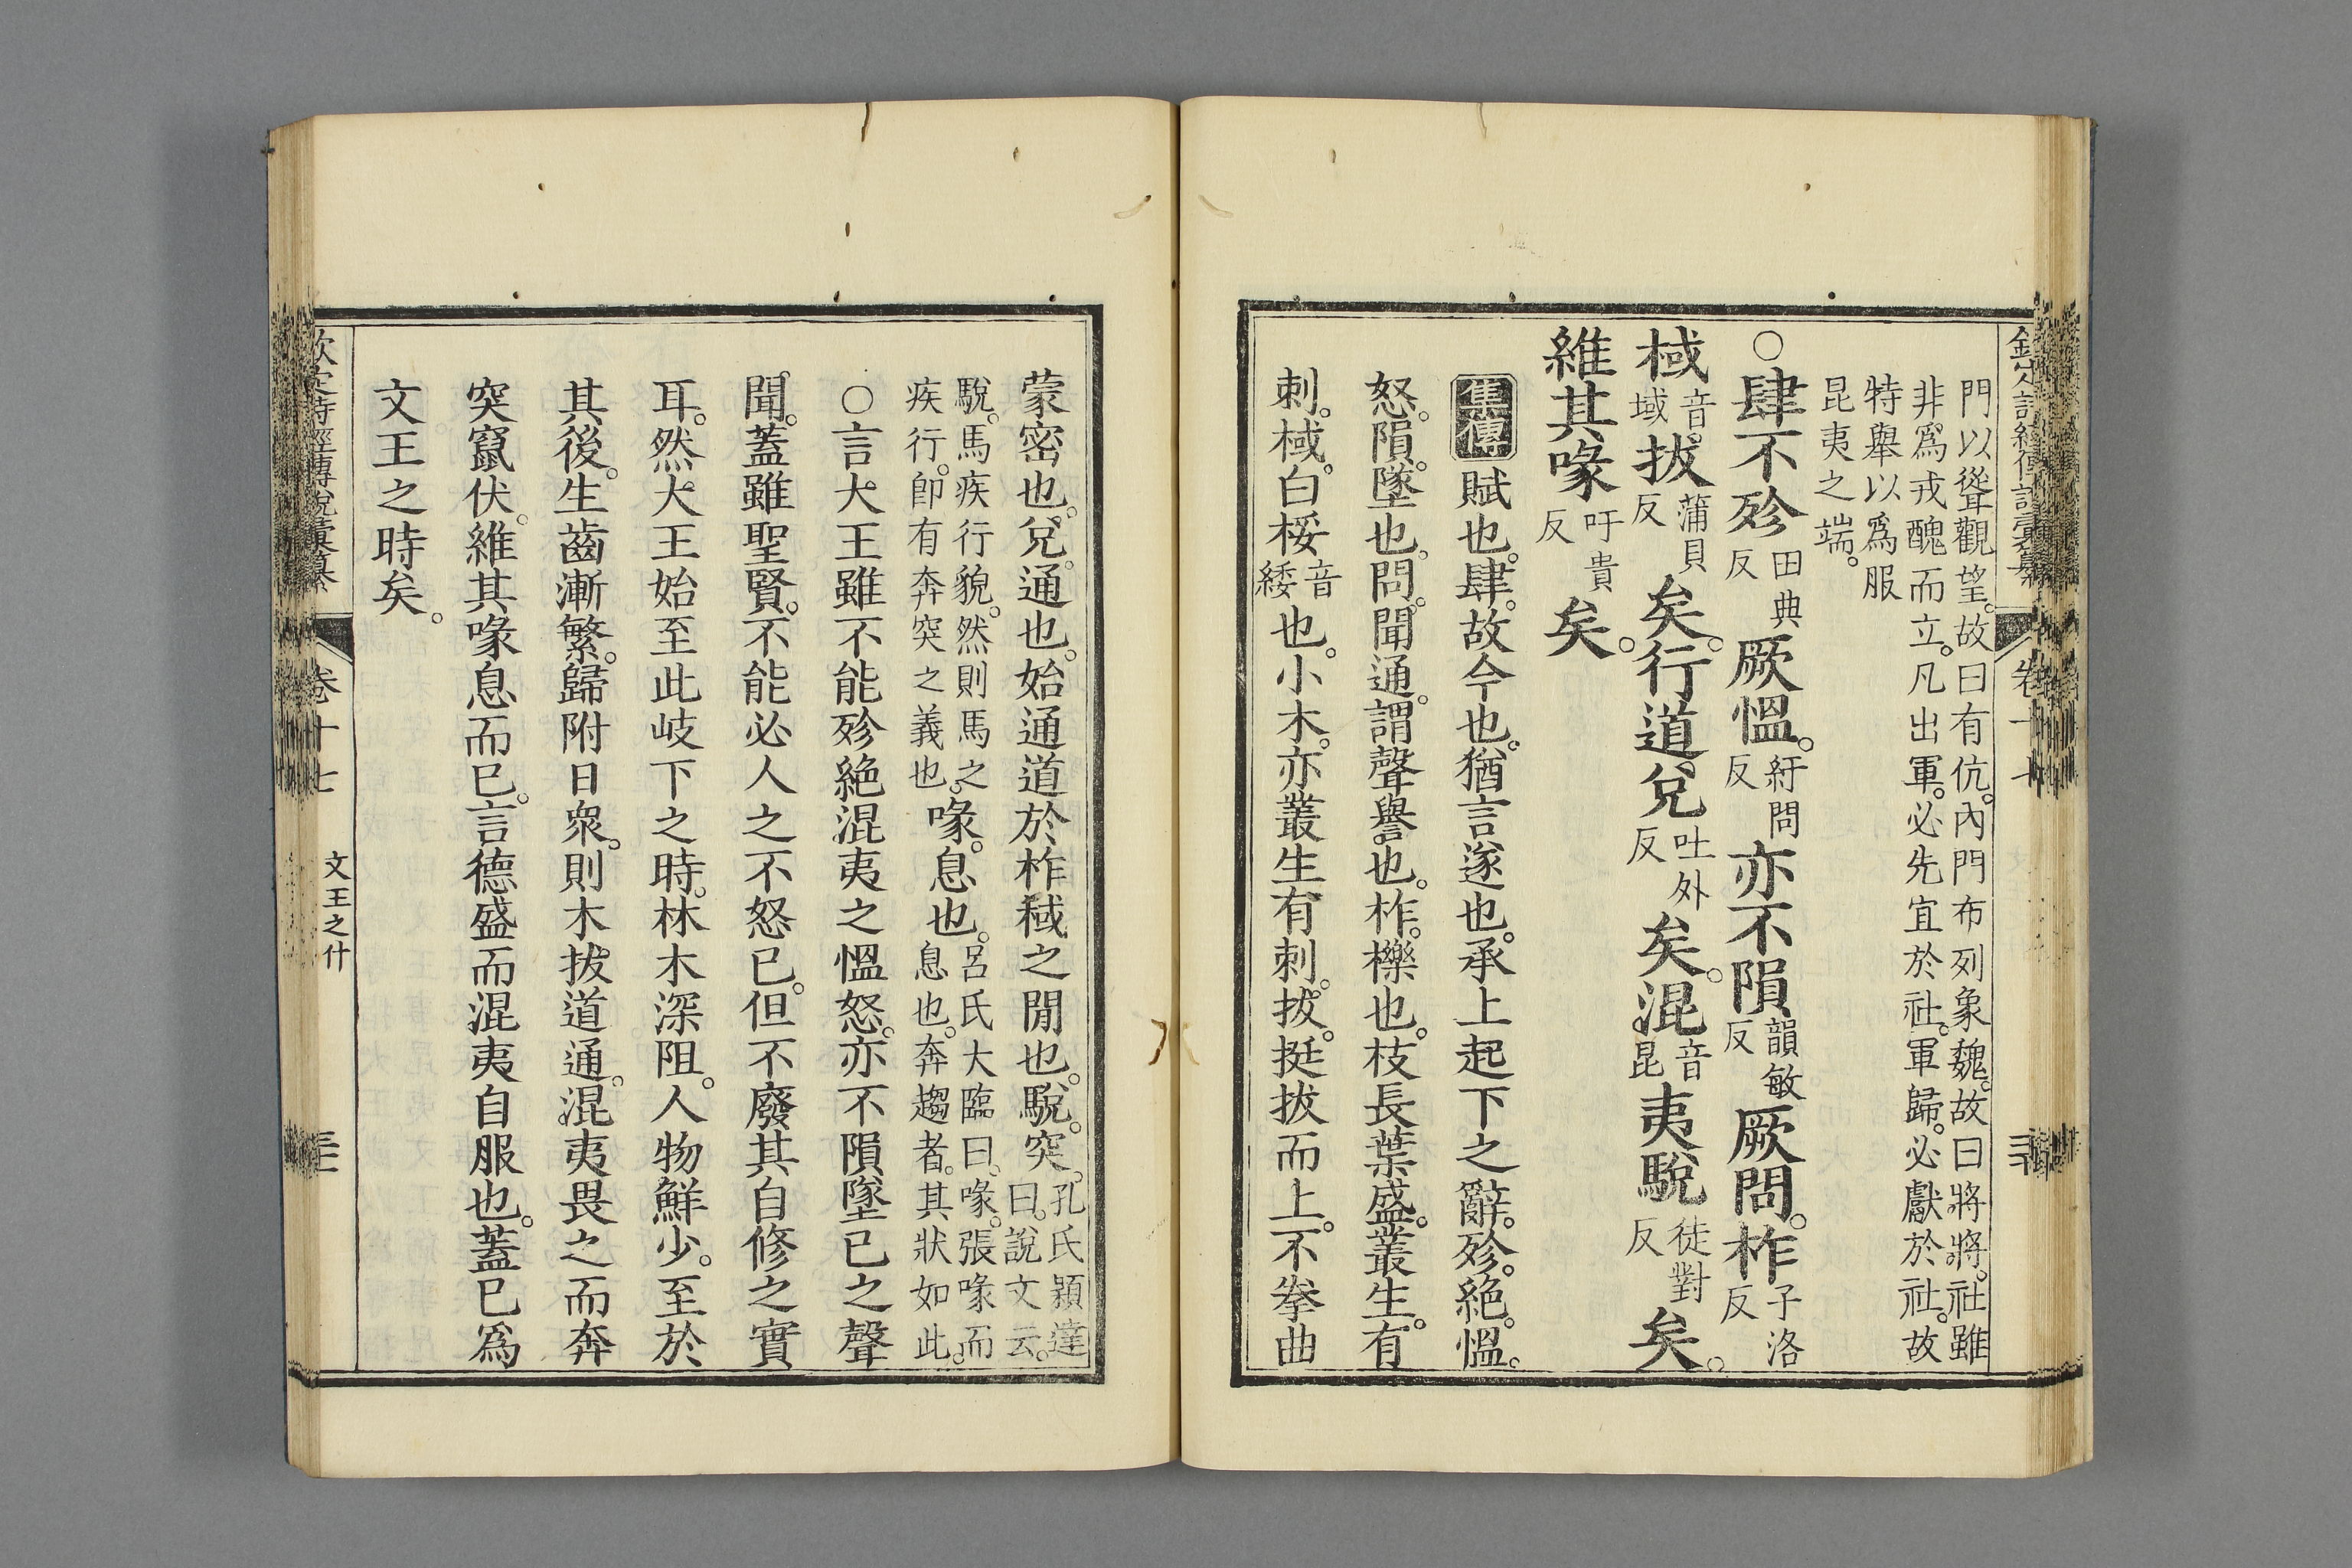 門以聳觀望。故曰有伉。內門布列象魏。故曰將將。社雖
非爲戎醜而立。凡出軍。必先宜於社。軍歸。必獻於社。故
特舉以爲服
昆夷之端。
○肆不殄田典反厥慍。紆問反亦不隕韻敏反厥問。柞子洛反
棫音域。拔蒲貝反矣。行道兌吐外反矣。混音昆夷駾徒對反矣。
維其喙吁貴反矣。
集傳 賦也。肆。故今也。猶言遂也。承上起下之辭。殄。絕。慍。
怒。隕。墜也。問。聞通。謂聲譽也。柞。櫟也。枝長葉盛。叢生。有
刺。棫。白桵音緌也。小木。亦叢生有刺。拔。挺拔而上。不拳曲
蒙密也。兌。通也。始通道於柞棫之閒也。駾。突。孔氏穎達曰。說文云。
駾。馬疾行貌。然則馬之疾行。卽有奔突之義也。喙。息也。呂氏大臨曰。喙。張喙而息也。奔趨者。其狀如此。
○言大王雖不能殄絕混夷之慍怒。亦不隕墜已之聲
聞。蓋雖聖賢。不能必人之不怒已。但不廢其自修之實
耳。然大王始至此岐下之時。林木深阻。人物鮮少。至於
其後。生齒漸繁。歸附日衆。則木拔道通。混夷畏之而奔
突竄伏。維其喙息而已。言德盛而混夷自服也。蓋已爲
文王之時矣。
欽定詩經傳說彙纂
卷十七
文王之什
三十一